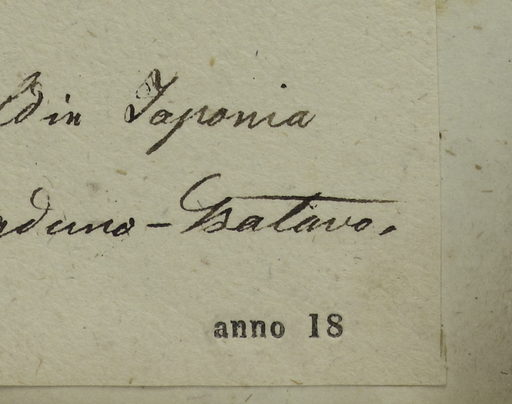 din Japonia
Batavo.
anno 18